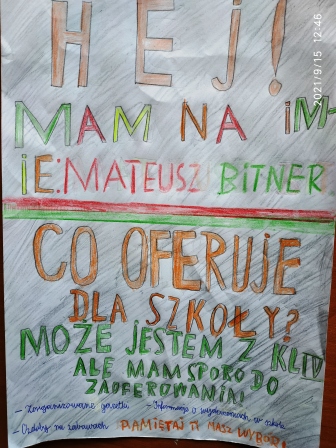 HEJ!
MAM NA IM-
IE: MATEUSZ BITNER
CO OFERUJE
DLA SZKOŁY?
MOŻE JESTEM Z KL IV
ALE MAM SPORO DO
ZAOFEROWANIA!
- Zorganizowanie gazetki - Informacje o wydarzeniach w szkole
- Ozdoby na zabawach PAMIĘTAJ TY MASZ WYBÓR!
2021/9/15 12:46